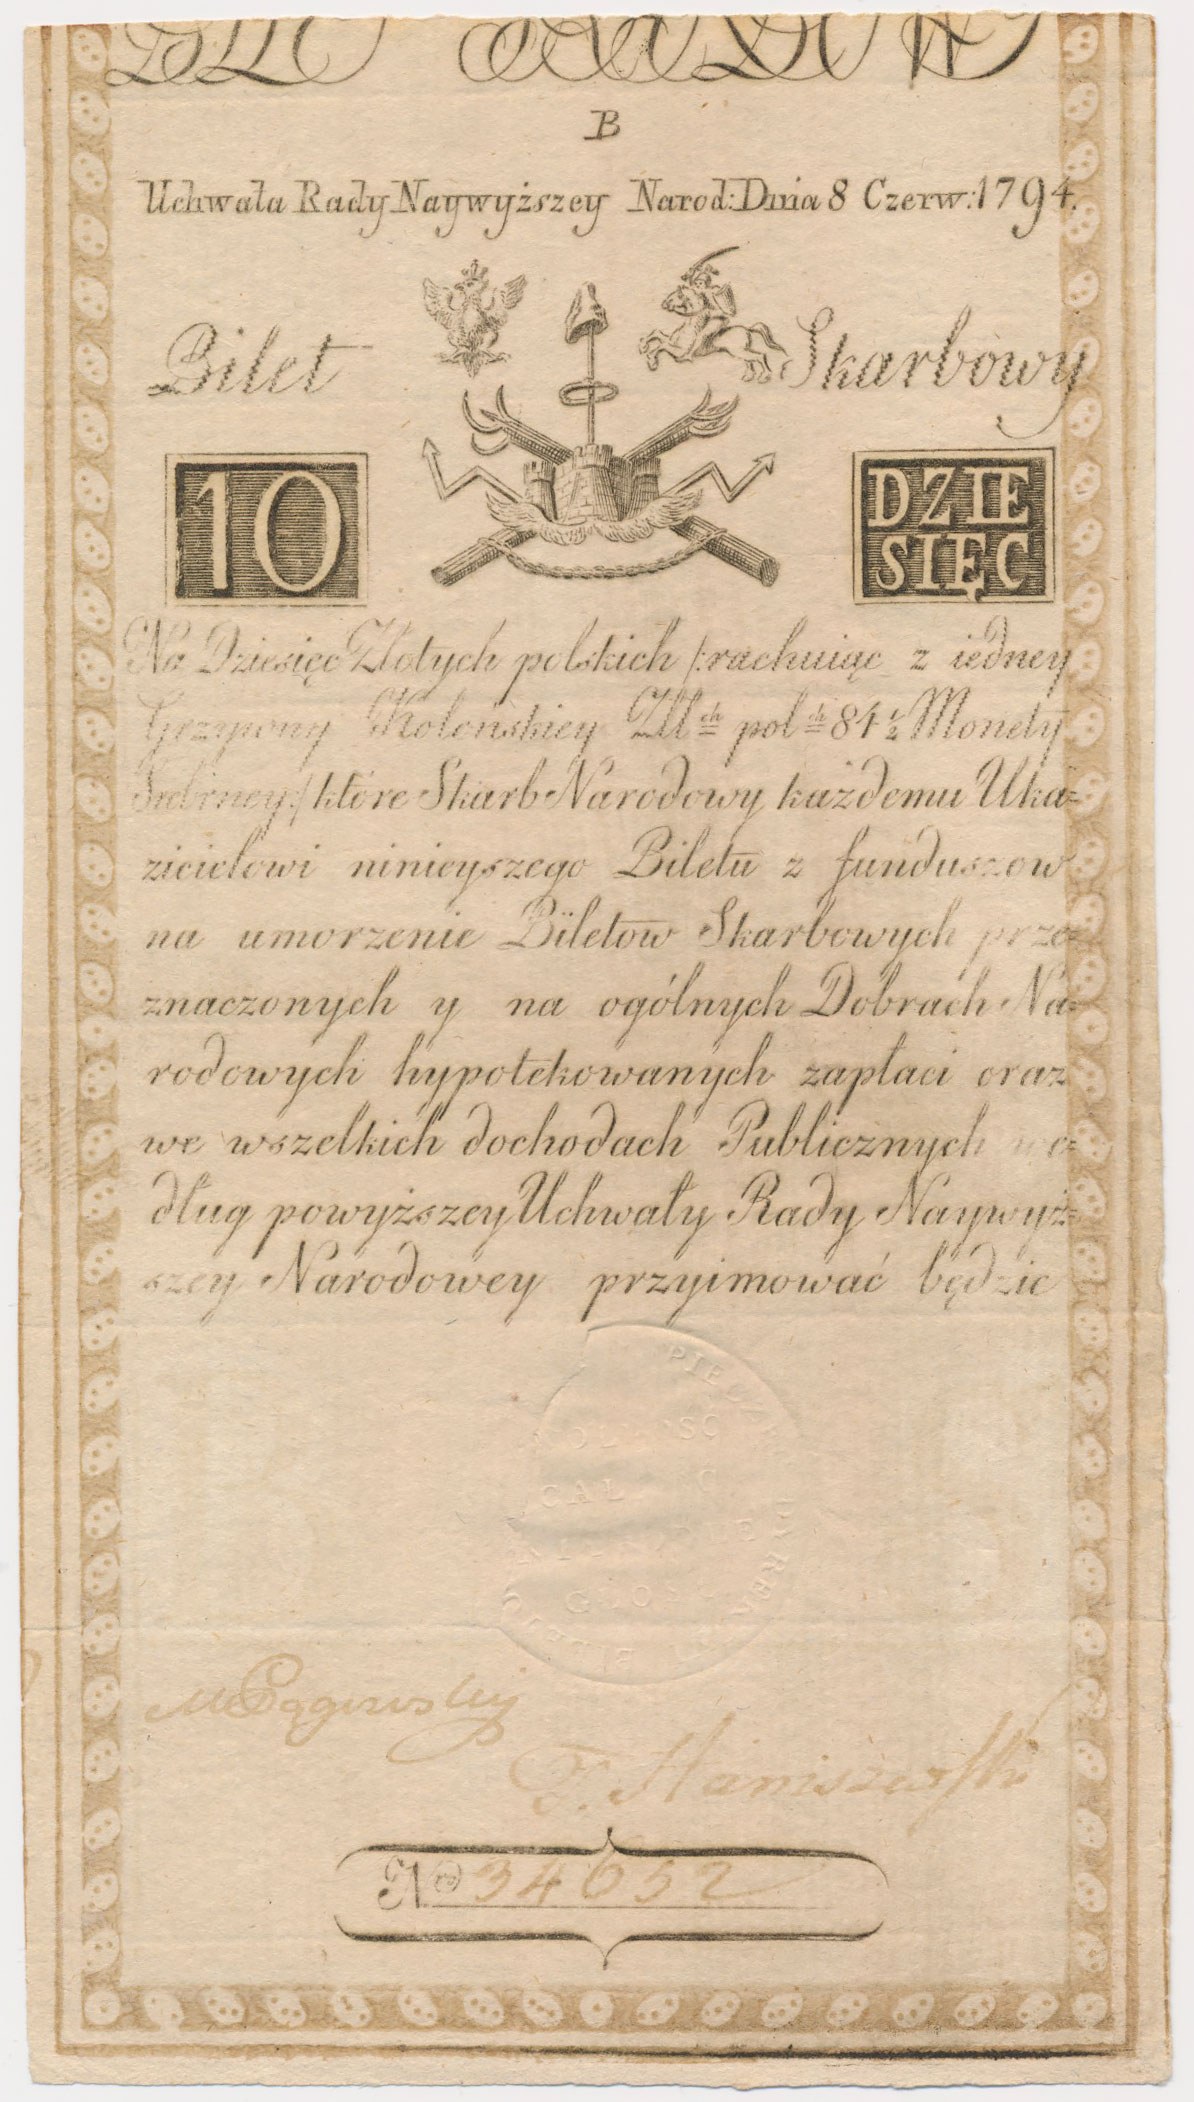 B
Uchwała Rady Naywyższey Narod: Dnia 8 Czerw: 1794.
Bilet Skarbowy
10
DZIE
SIĘC
Na Dziesięc Złotych polskich /:rachuiąc z iedney
Grzywny Kolońskiey Złł ch pol ch 84 1/2 Monety
Srebrney:/ które Skarb Narodowy każdemu Uka=
zicielowi ninieyszego Biletu z funduszow
na umorzenie Biletow Skarbowych prze=
znaczonych y na ogólnych Dobrach Na=
rodowych hypotekowanych zapłaci oraz
we wszelkich dochodach Publicznych we=
dług powyższey Uchwały Rady Naywyż=
szey Narodowey przyimować będzie
PIECZ
F. Staniszewski
Nro 34652